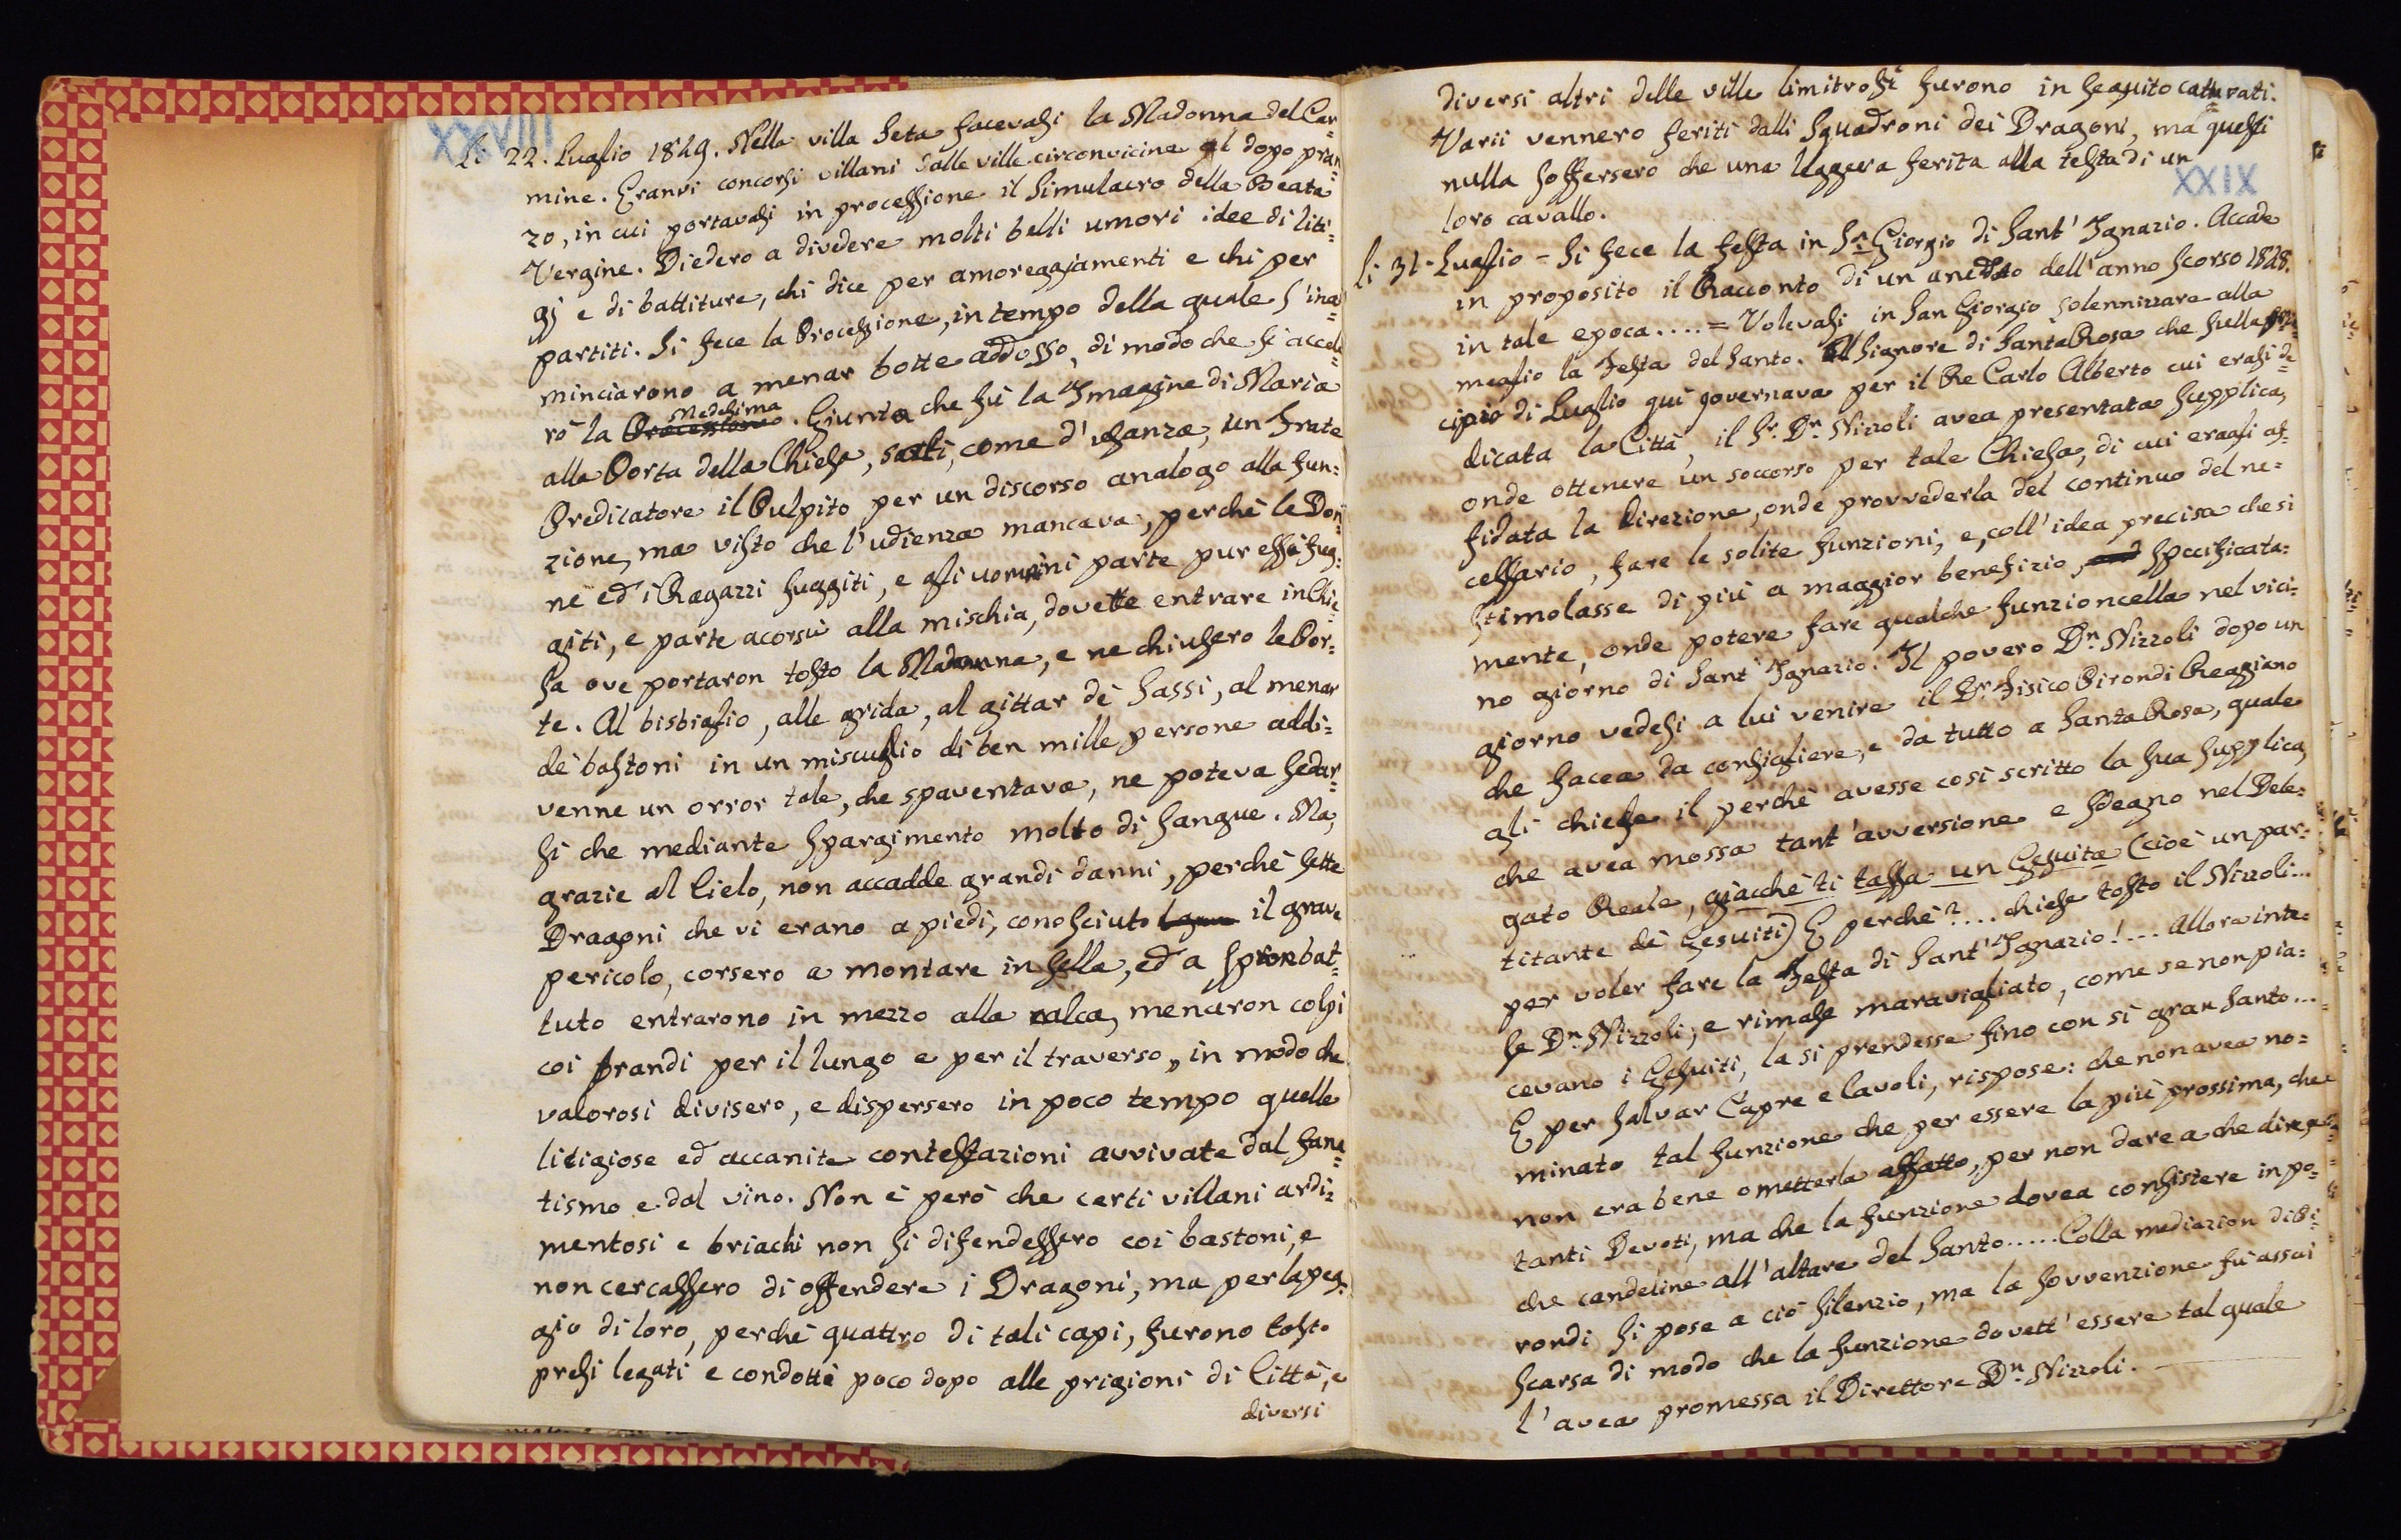 XXVIII
Li 22. Luglio 1849. Nella villa Seta facevasi la Madonna del Car=
mine. Eranvi concorsi villani dalle ville circonvicine al dopo pran=
zo, in cui portavasi in processione il Simulacro della Beata
Vergine. Diedero a divedere molti belli umori idee di liti=
gj e di battiture, chi dice per amoreggiamenti e chi per
partiti. Si fece la Processione, in tempo della quale s'inco=
minciarono a menar botte addosso, di modo che si accele=
rò la Processione Medesima. Giunta che fù la Imagine di Maria
alla Porta della Chiesa, salì, come d'usanza, un Frate
Predicatore il Pulpito per un discorso analogo alla fun=
zione, ma visto che l'udienza mancava, perchè le Don=
ne ed i Ragazzi fuggiti, e gli uomini parte pur essi fug=
giti, e parte acorsi alla mischia, dovette entrare in Chie=
sa ove portaron tosto la Madonna, e ne chiusero le Por=
te. Al bisbiglio, alle grida, al gittar dè sassi, al menar
dè bastoni in un miscuglio di ben mille persone addi=
venne un orror tale, che spaventava, ne poteva sedar=
si che mediante spargimento molto di sangue. Ma,
grazie al Cielo, non accadde grandi danni, perchè sette
Dragoni che vi erano a piedi, conosciuto il grave
pericolo, corsero a montare in sella, ed a spron bat=
tuto entrarono in mezzo alla calca, menaron colpi
coi brandi per il lungo e per il traverso, in modo che
valorosi divisero, e dispersero in poco tempo quelle
litigiose ed accanite contestazioni avvivate dal fana=
tismo e dal vino. Non è però che certi villani ardi=
mentosi e briachi non si difendessero coi bastoni, e
non cercassero di offendere i Dragoni, ma per la peg=
gio di loro, perchè quattro di tali capi, furono tosto
presi legati e condotti poco dopo alle prigioni di Città, e
diversi
diversi altri delle ville limitrofi furono in seguito catturati.
Varii vennero feriti dalli Squadroni dei Dragoni, ma questi
nulla soffersero che una leggera ferita alla testa di un
loro cavallo.
XXIX
Li 31. Luglio = Si fece la festa in Sn Giorgio di Sant'Ignazio. Accade
in proposito il Racconto di un anedoto dell'anno scorso 1848.
in tale epoca....= Volevasi in San Giorgio solennizzare alla
meglio la Festa del Santo. Il Signore di Santa Rosa che sulla prin=
cipio di Luglio quì governava per il Re Carlo Alberto cui erasi de=
dicata la Città, il Sr. Dn. Nizzoli avea presentata supplica,
onde ottenere un soccorso per tale Chiesa, di cui eragli af=
fidata la direzione, onde provvederla del continuo del ne=
cessario, fare le solite funzioni, e, coll'idea precisa che si
stimolasse di più a maggior benefizio, specificata=
mente, onde potere fare qualche funzioncella nel vici=
no giorno di Sant'Ignazio. Il povero Dn. Nizzoli dopo un
giorno vedesi a lui venire il Dr. Fisico Pirondi Reggiano
che facea da consigliere, e da tutto a Santa Rosa, quale
gli chiese il perchè avesse così scritto la sua supplica,
che avea mossa tant'avversione e sdegno nel Dele=
gato Reale, giacchè ti tassa un Gesuita (cioè un par=
titante dè Gesuiti) E perchè?... chiese tosto il Nizzoli...
per voler fare la Festa di Sant'Ignazio!... Allora inte=
se Dn. Nizzoli, e rimase maravigliato, come se non pia=
cevano i Gesuiti, la si prendesse fino con sì gran Santo...
E per salvar Capre e Cavoli, rispose: che non avea no=
minato tal funzione che per essere la più prossima, che
non era bene ometterla affatto, per non dare a che dire a
tanti Devoti, ma che la funzione dovea consistere in po=
che candeline all'altare del Santo..... Colla mediazion di Pi=
rondi si pose a ciò silenzio, ma la sovvenzione fù assai
scarsa di modo che la funzione dovett'essere tal quale
l'avea promessa il Direttore Dn. Nizzoli.